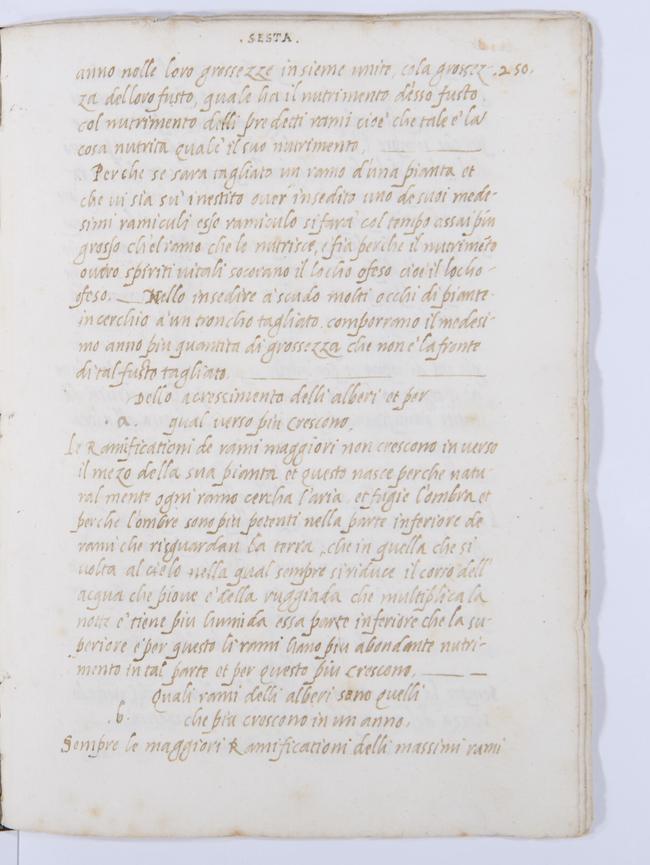 . SESTA .
anno nolle loro grossezze insieme unite, cola grossez- .250.
za del loro fusto, quale ha il nutrimento d'esso fusto
col nutrimento delli predetti rami cioe' che tale e' la
cosa nutrita quale' il suo nutrimento
Perche se sara tagliato un ramo d'una pianta et
che vi sia su' inestito over insedito uno de suoi mede-
simi ramiculi esso ramiculo si fara' col tempo assai piu
grosso ch'el ramo che lo nutrisce, e fia perche il nutrimēto
overo spiriti vitali socorano il locho ofeso cioe il locho
ofeso. Nello insedire a' scudo molti occhi di piante
in cerchio a' un troncho tagliato. comporrano il medesi-
mo anno piu quantita di grossezza che non e' la fronte
di tal fusto tagliato.
Dello acrescimento delli alberi et per
. a. qual verso piu crescono
Le Ramificationi de rami maggiori non crescono in verso
il mezo della sua pianta et questo nasce perche natu-
ral mente ogni ramo cercha l'aria et fugie l'ombra et
perche l'ombre sono piu potenti nella parte inferiore de
rami che risguardan la terra, che in quella che si
volta al cielo nella qual sempre si riduce il corso dell'
acqua che piove e' della ruggiada che multiplica la
notte e' tiene piu humida essa parte inferiore che la su-
periore e' per questo li rami hano piu abondante nutri-
mento in tal parte et per questo piu crescono.
Quali rami delli alberi sono quelli
.b. che piu crescono in un anno.
Sempre le maggiori Ramificationi delli massimi rami